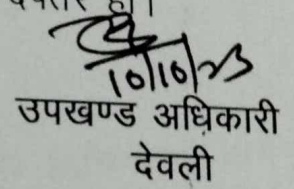 10/10/23
उपखण्ड अधिकारी
देवली